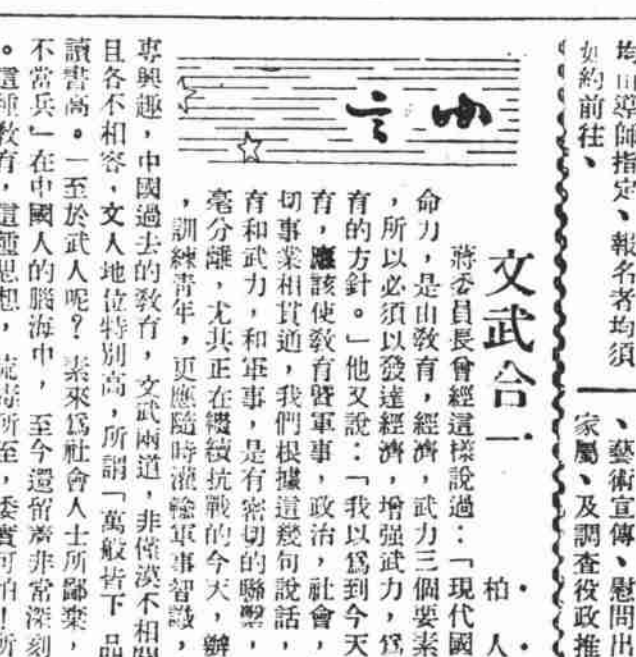 均由導師指定、報名者均須
如約前往、
、藝術宣傳、慰問出
家屬、及調查役政推
言
文武合一
柏人・
蔣委員長曾經這樣說過:「現代國
命力,是由教育,經濟,武力三個要素
,所以必須以發達經濟,增强武力,爲
有的方針。」他又說:「我以爲到今天
育,應該使教育曁軍事,政治,社會,
切事業相貫通,我們根據這幾句說話,
有和武力,和軍事,是有密切的聯繫,
毫分離,尤其正在繼續抗戰的今天,辦
,訓練青年,更應隨時灌輸軍事智識,
專興趣,中國過去的敎育,文武兩道,非僅漠不相關
且各不相容,文人地位特別高,所謂「萬般皆下品
讀書高。」至於武人呢?素來爲社會人士所鄙棄,
不當兵」在中國人的腦海中,至今還留着非常深刻
。這種教育,這種思想,流毒所至,委實可怕!所